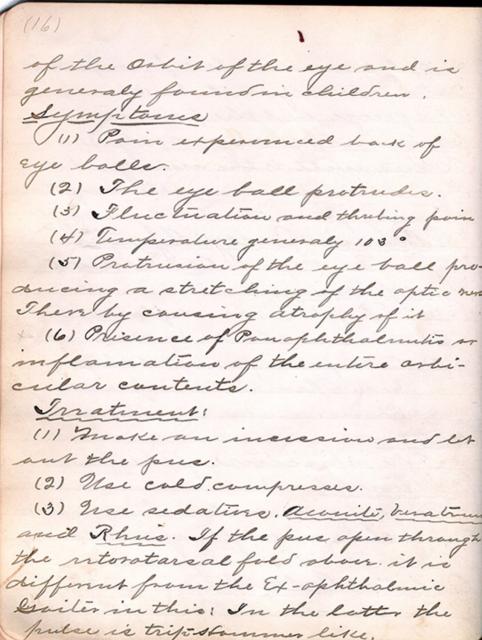 (16)
of the orbit of the eye and is
generaly found in children.
Symptoms
(1) Pain experienced back of
eye balls.
(2) The eye ball protrudes.
(3) Fluctuation and throbing pain
(4) Temperature generaly 103°
(5) Protrusion of the eye ball pro-
ducing a stretching of the optic
There by causing atrophy of it
(6) Presence of Panophthalmitis or
inflamation of the entire orbi-
cular contents.
Treatment:
(1) Make an incession and let
out the pus.
(2) Use cold compresses.
(3) Use sedatives. Aconite, Veratrum
and Rhus. If the pus open through
the retrotarsal fold above it is
different from the Ex-ophthalmic
Goiter in this: In the latter the
pulse is trip-hammer like.